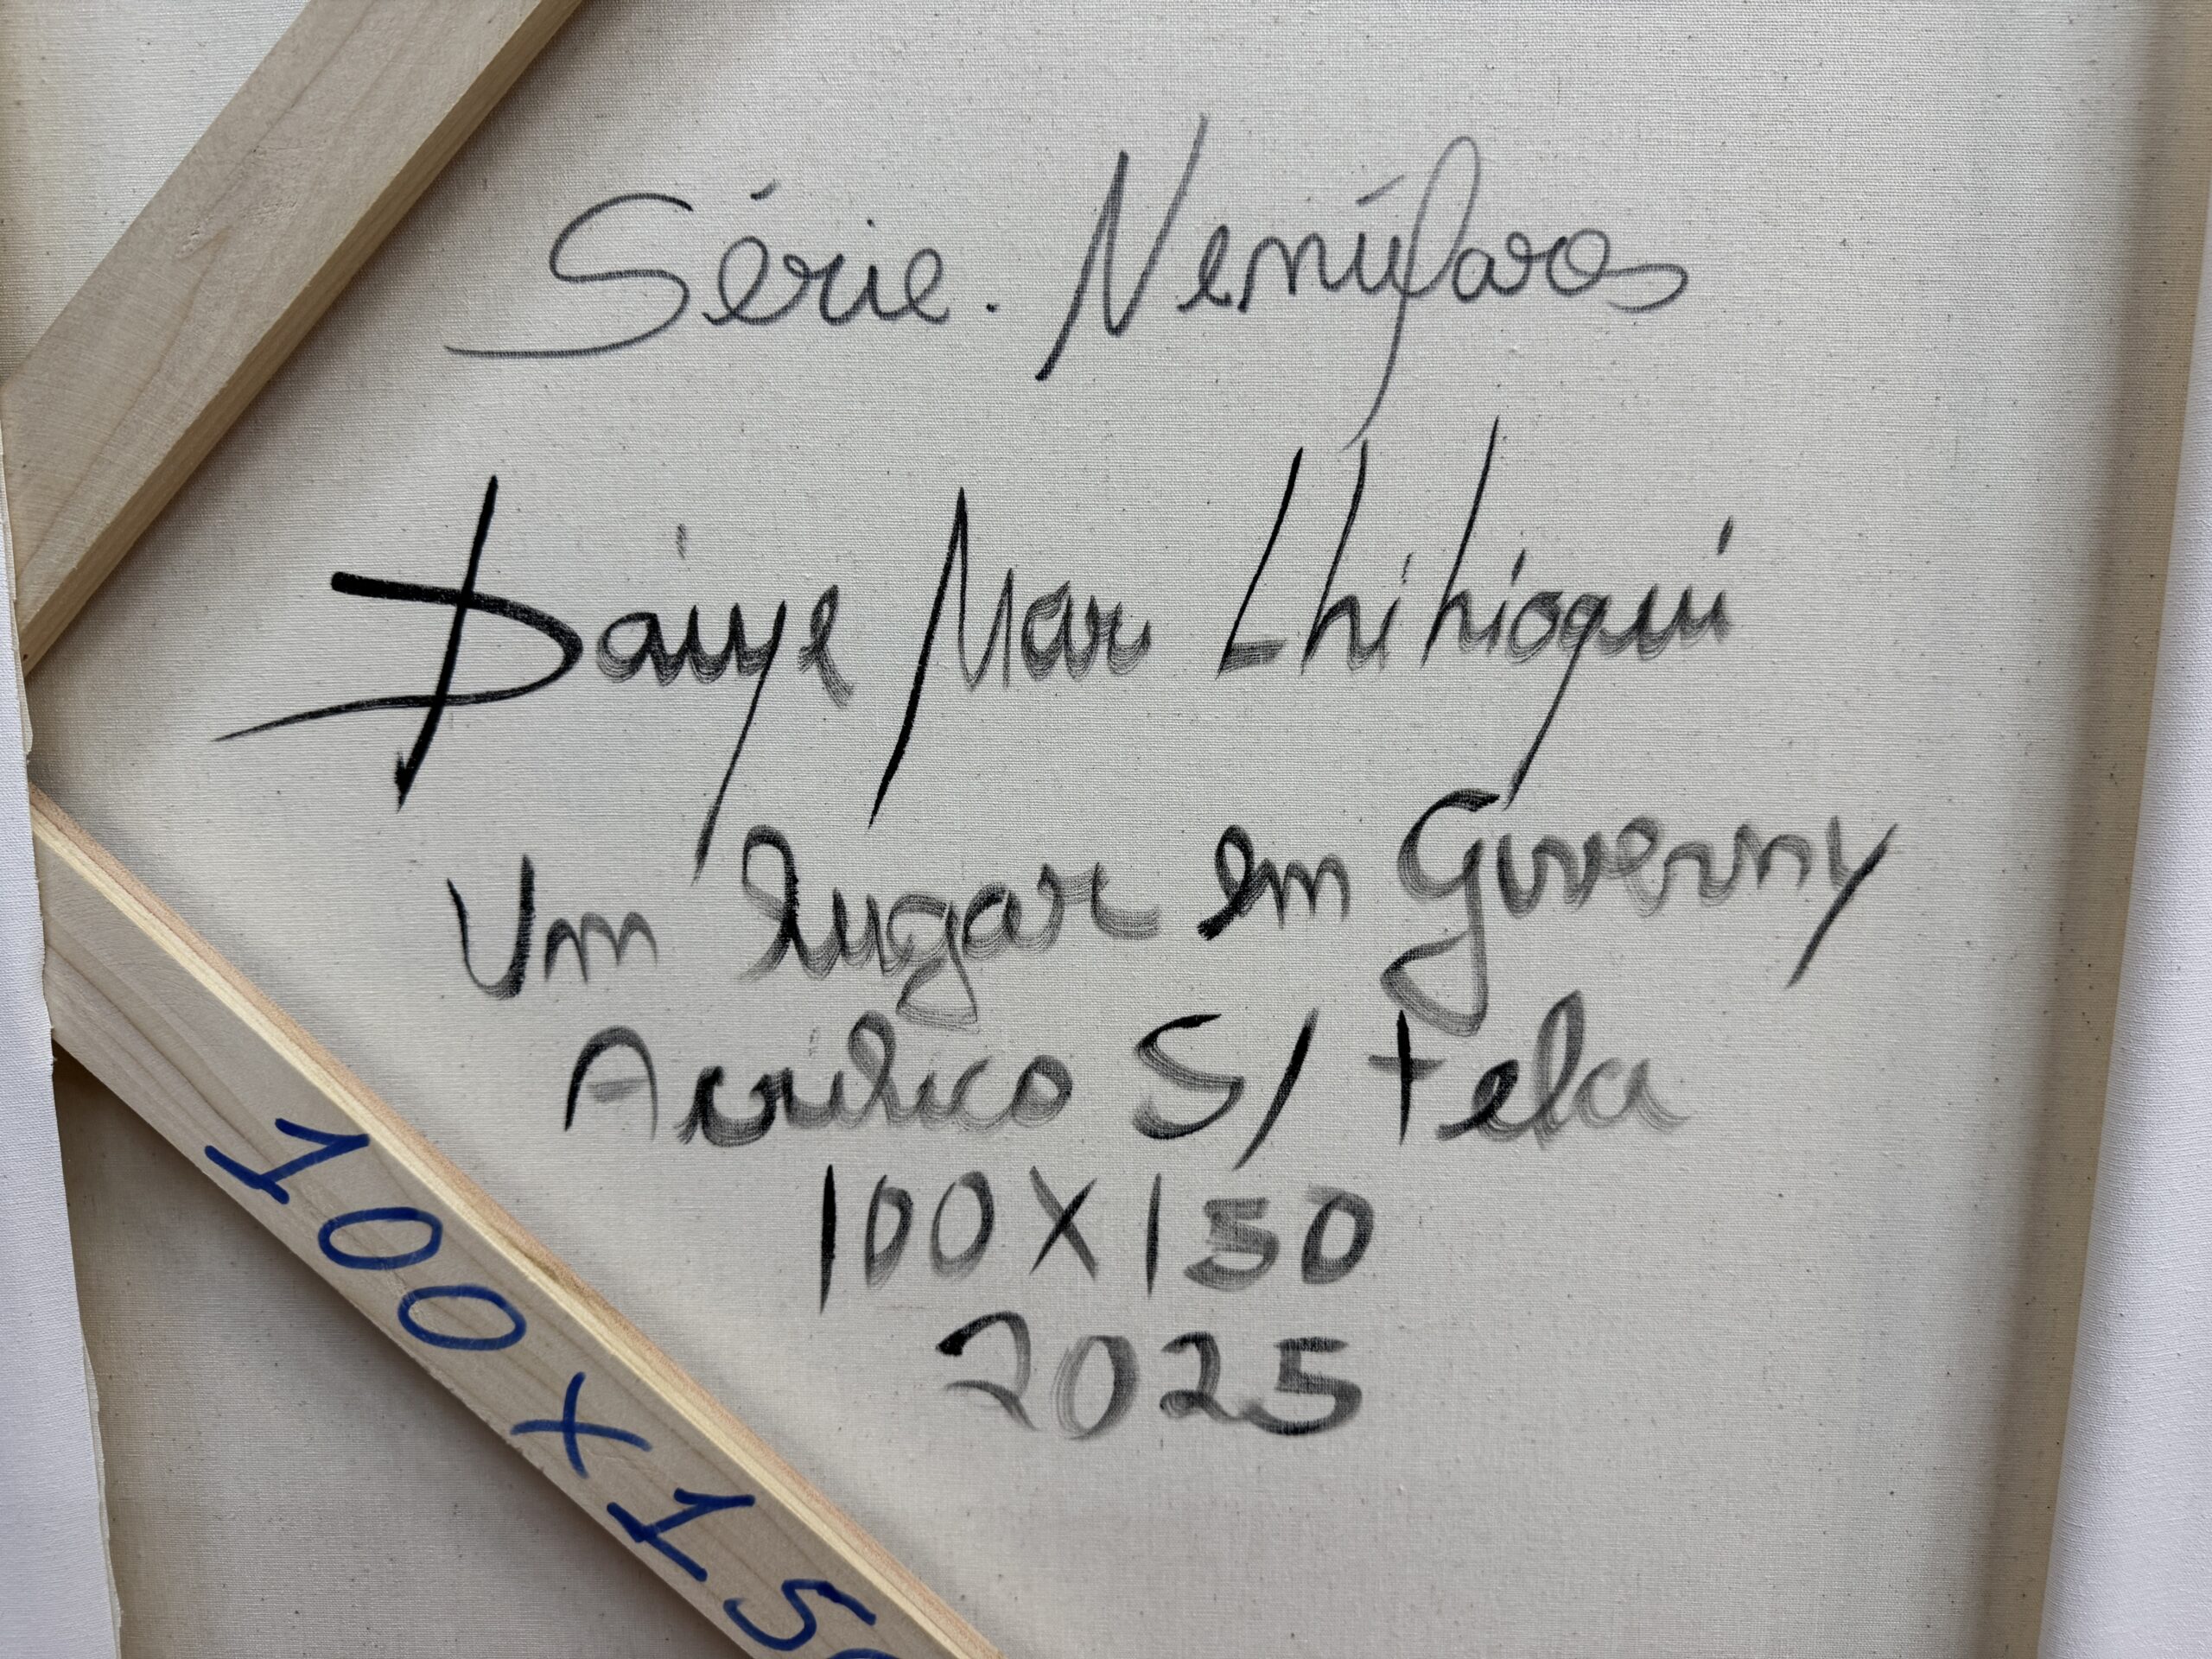 Série. Nenúfares
Daiye Mar Lhihioqui
Um lugar em Giverny
Acrílico S/ tela
100X150
2025
100x150